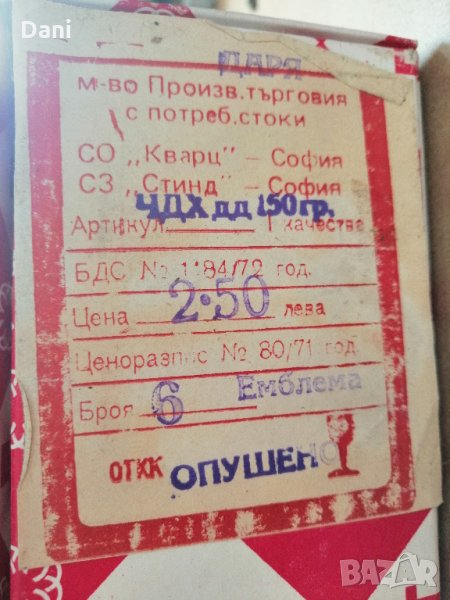 Dani
ДАРЯ
м-во Произв.търговия
с потреб.стоки
СО „Кварц" – София
СЗ „Стинд" – София
ЧДХ дд 150гр.
Артикул 1 качество
БДС № 1184/72 год.
Цена 2·50 лева
Ценоразпис № 80/71 год.
Броя 6 Емблема
ОТКК ОПУШЕНО
BAZAR